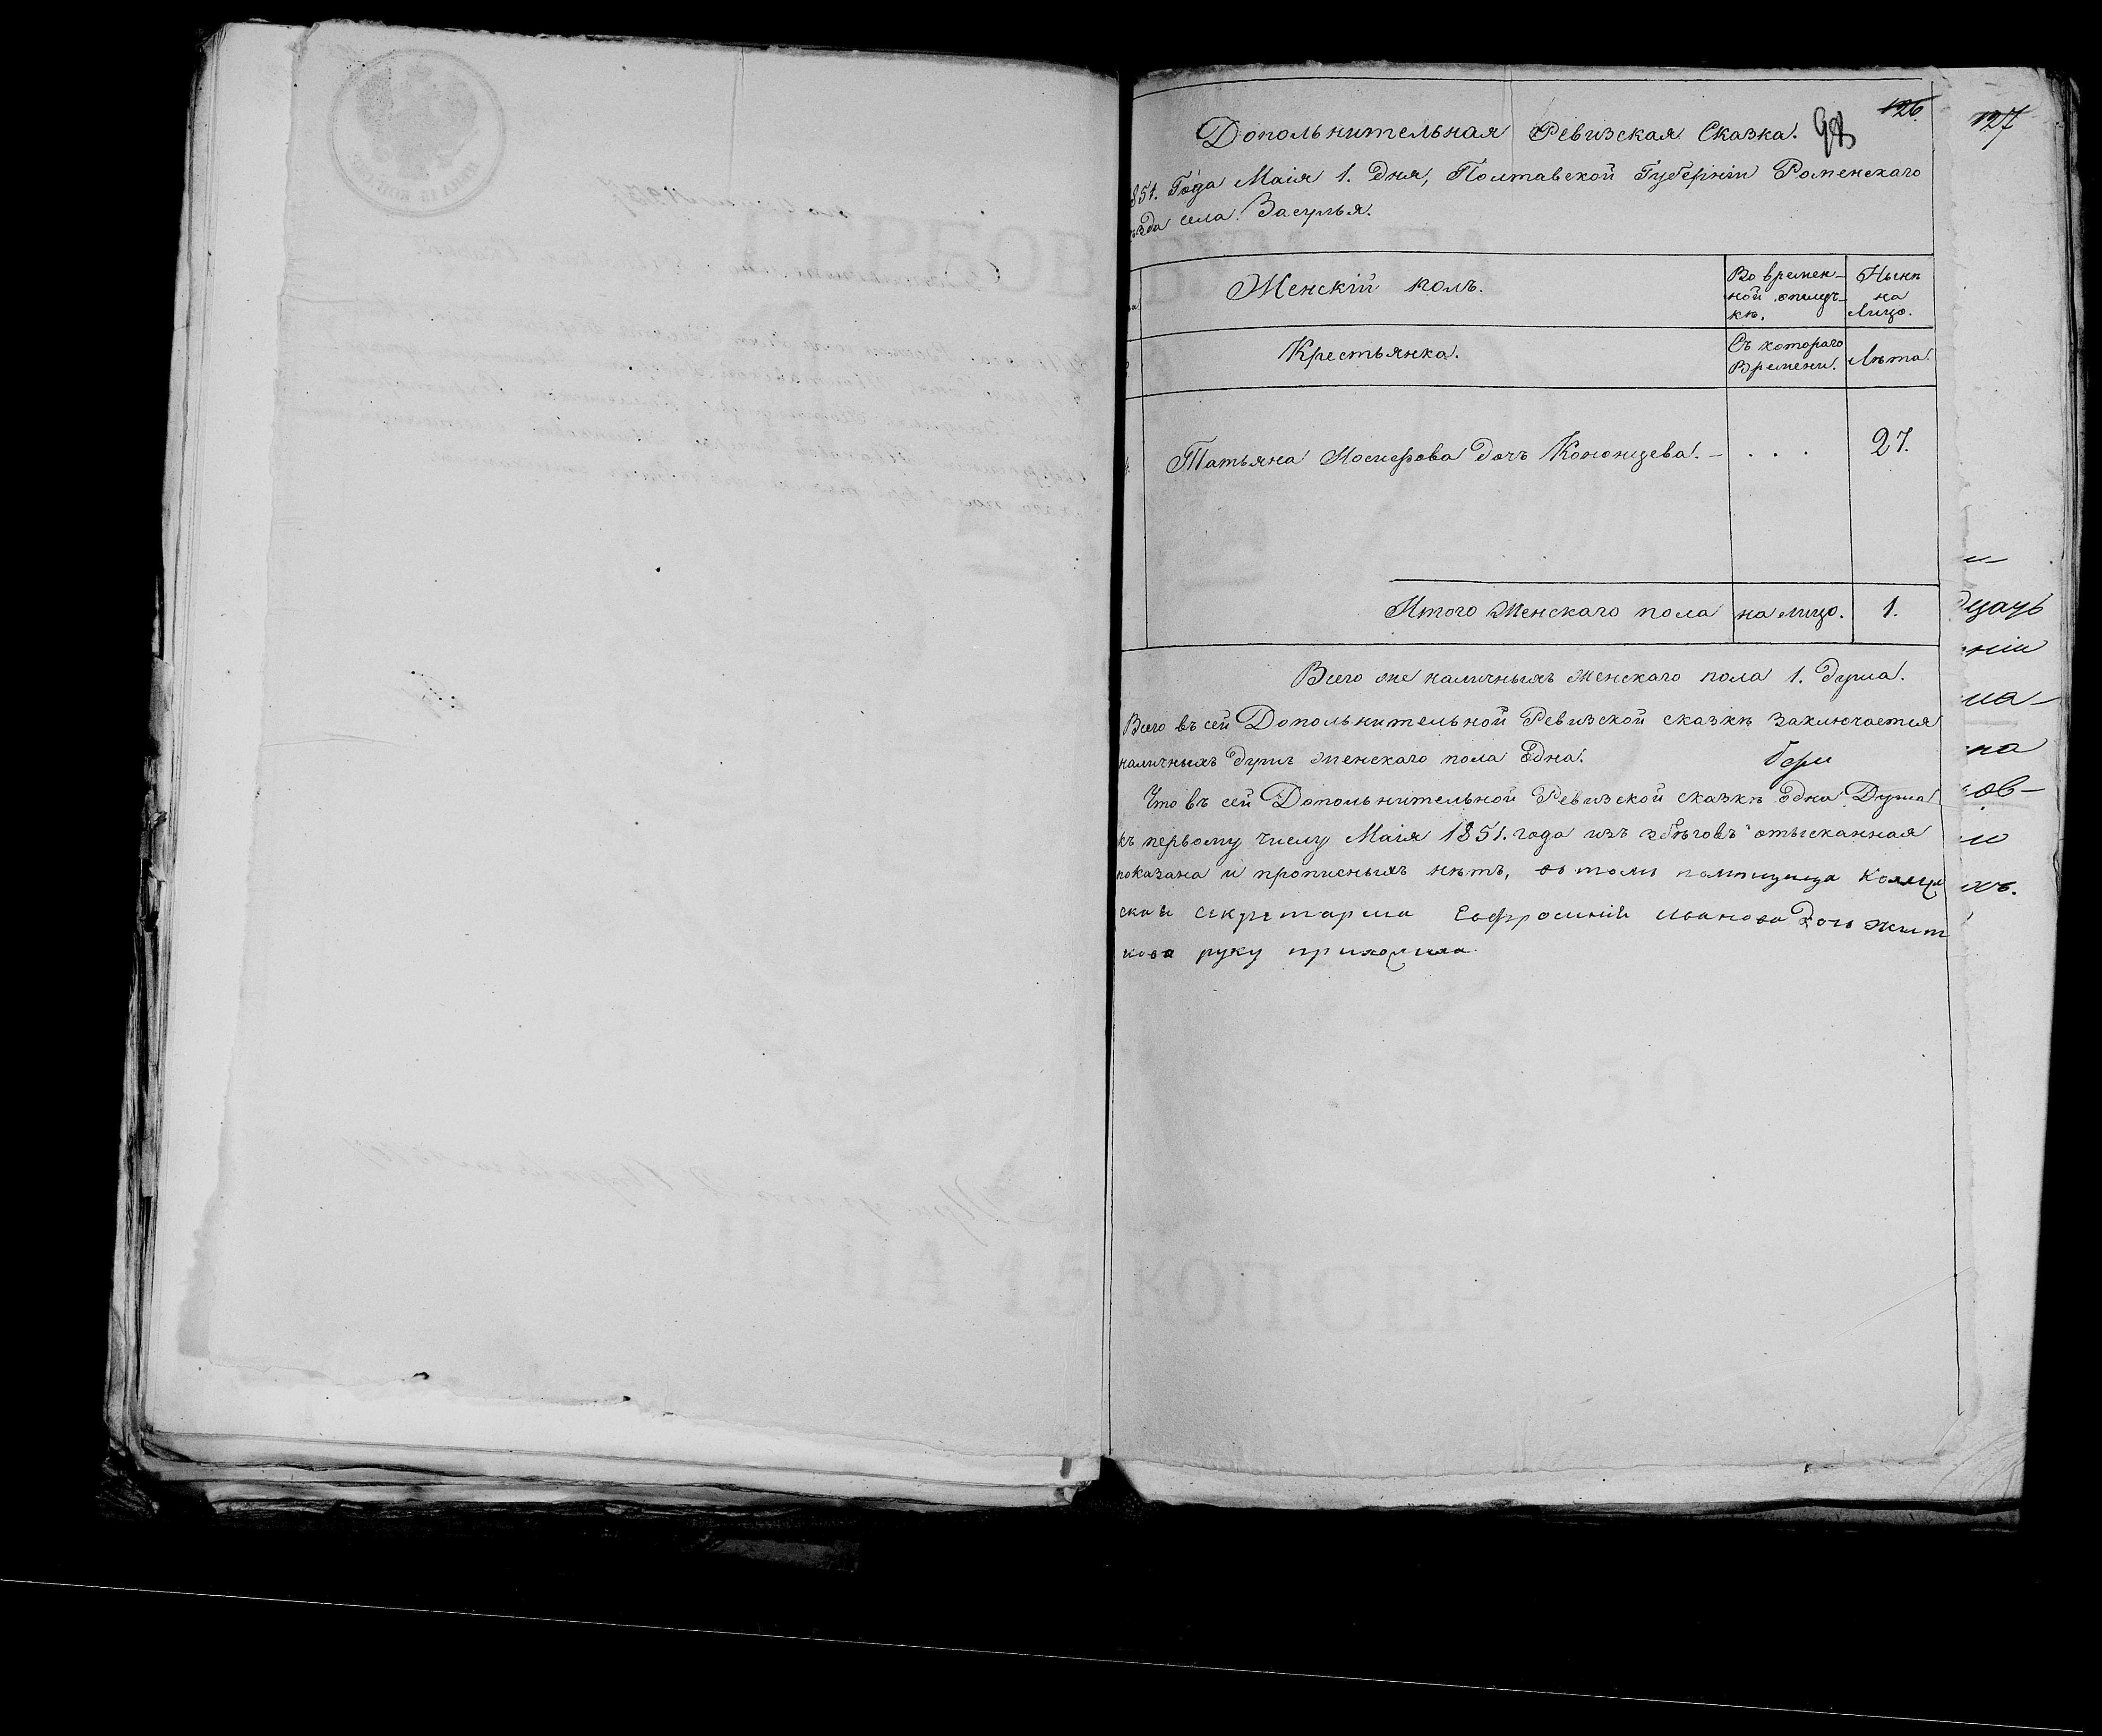 126.
98
127
Дополнительная Ревизская Сказка.
851. Года Маія 1. Дня, Полтавской Губерніи Роменскаго
ѣзда села Засулья.
Женскій полъ.
Во времен-
ной отлуч-
кѣ.
Нынѣ
на
Лицо.
Крестьянка.
Съ котораго
Времени.
Лѣта.
Татьяна дочь Кононцева. – . . . 27.
Итого Женскаго пола на лицо. 1.
Всего же наличныхъ женскаго пола 1. Душа.
Всего въ сей Дополнительной Ревизской сказкѣ заключается
наличныхъ душъ женскаго пола Една.
Что въ сей Дополнительной Ревизской сказкѣ Една Душа
къ первому числу Маія 1851. года изъ збѣговъ отысканная
показана и прописныхъ нѣтъ, въ томъ помещица колеж
скай секретарша Ефросинія Иванова Дочь Жит
кова руку приложила.
дуачь
ніи
ма-
на
ов-
ю
хъ.